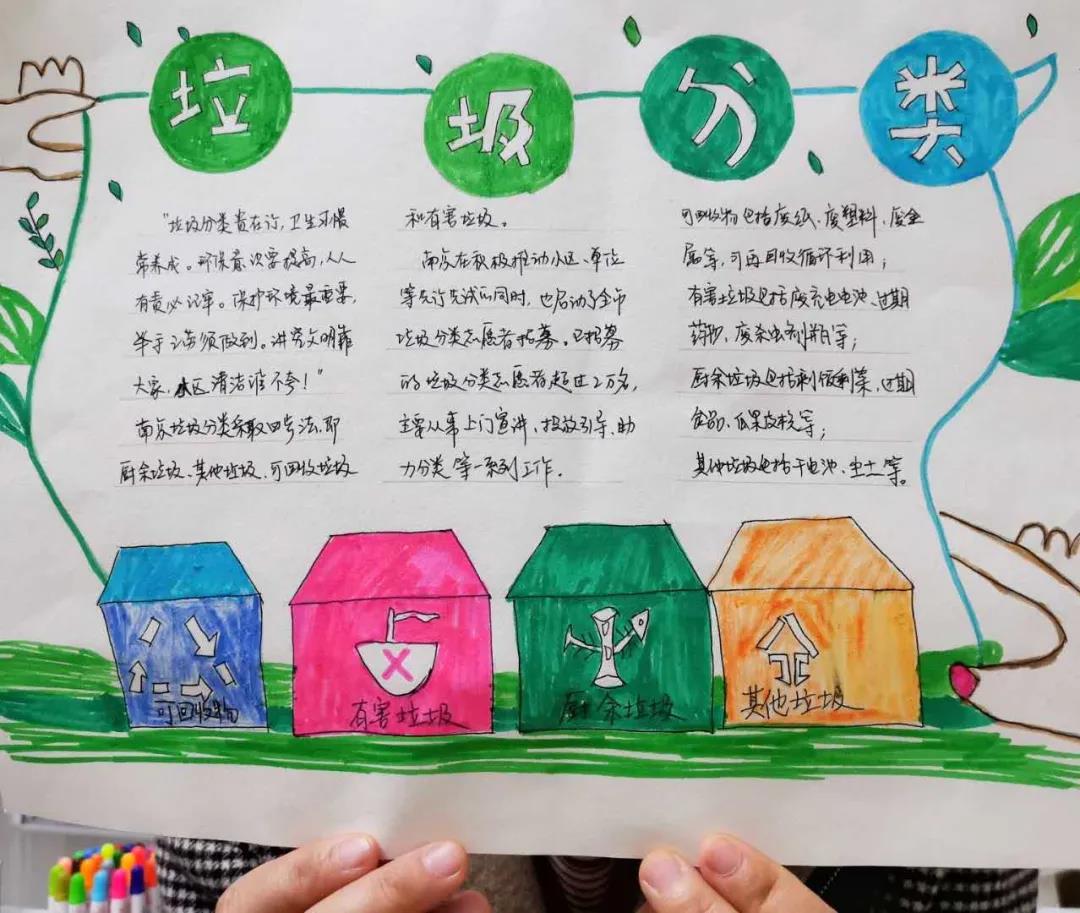 垃圾分类
"垃圾分类贵在行,卫生习惯
常养成。环保意识要提高,人人
有责必记牢。保护环境最重要,
举手之劳须做到。讲究文明靠
大家,小区清洁谁不夸!"
南京垃圾分类采取四分法,即
厨余垃圾、其他垃圾、可回收垃圾
和有害垃圾。
南京在积极推动小区、单位
等先行先试的同时,也启动了全市
垃圾分类志愿者招募。已招募
的垃圾分类志愿者超过2万名,
主要从事上门宣讲、投放引导、助
力分类等一系列工作.
可回收物包括废纸、废塑料、废金
属等,可再回收循环利用;
有害垃圾包括废充电电池、过期
药物、废杀虫剂瓶等;
厨余垃圾包括剩饭剩菜、过期
食品、瓜果皮核等;
其他垃圾包括干电池、尘土等。
可回收物
有害垃圾
厨余垃圾
其他垃圾